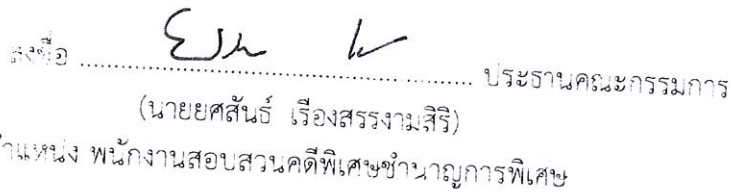 ลงชื่อ ........................................................ ประธานคณะกรรมการ
(นายยศสันธ์ เรืองสรรงามสิริ)
ตำแหน่ง พนักงานสอบสวนคดีพิเศษชำนาญการพิเศษ